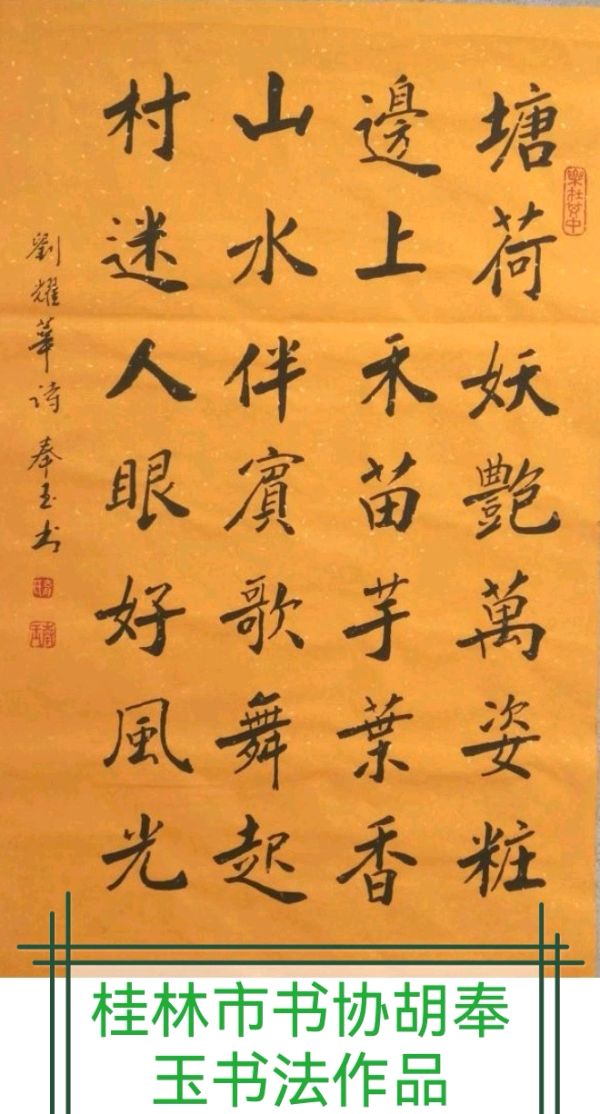 塘荷妖艷萬姿粧
邊上禾苗芋葉香
山水伴賓歌舞起
村迷人眼好風光
劉耀華诗 奉玉书
桂林市书协胡奉
玉书法作品